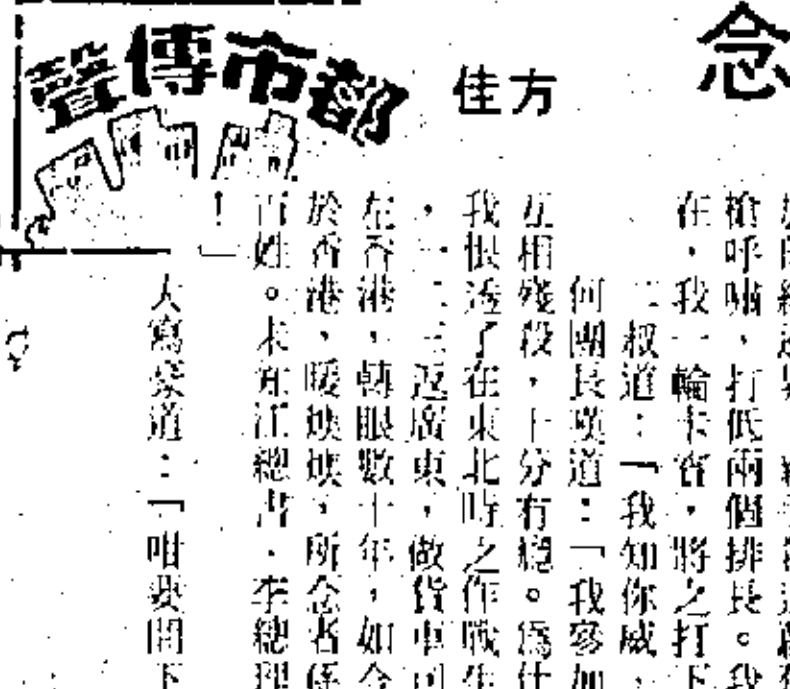 念
方佳
都市傳聲
槍呼嘯，打低兩個排長。我
在，我一輪卡賓，將之打下
二叔道：「我知你威，
何團長嘆道：「我參加
互相殘殺，十分有癮。為什
我恨透了在東北時之作戰生
，一二三返廣東，做貨車司
在香港，轉眼數十年，如今
於香港，暖焕焕，所念者係
百姓。未知江總書、李總理
！」
大寫家道：「咁要開下